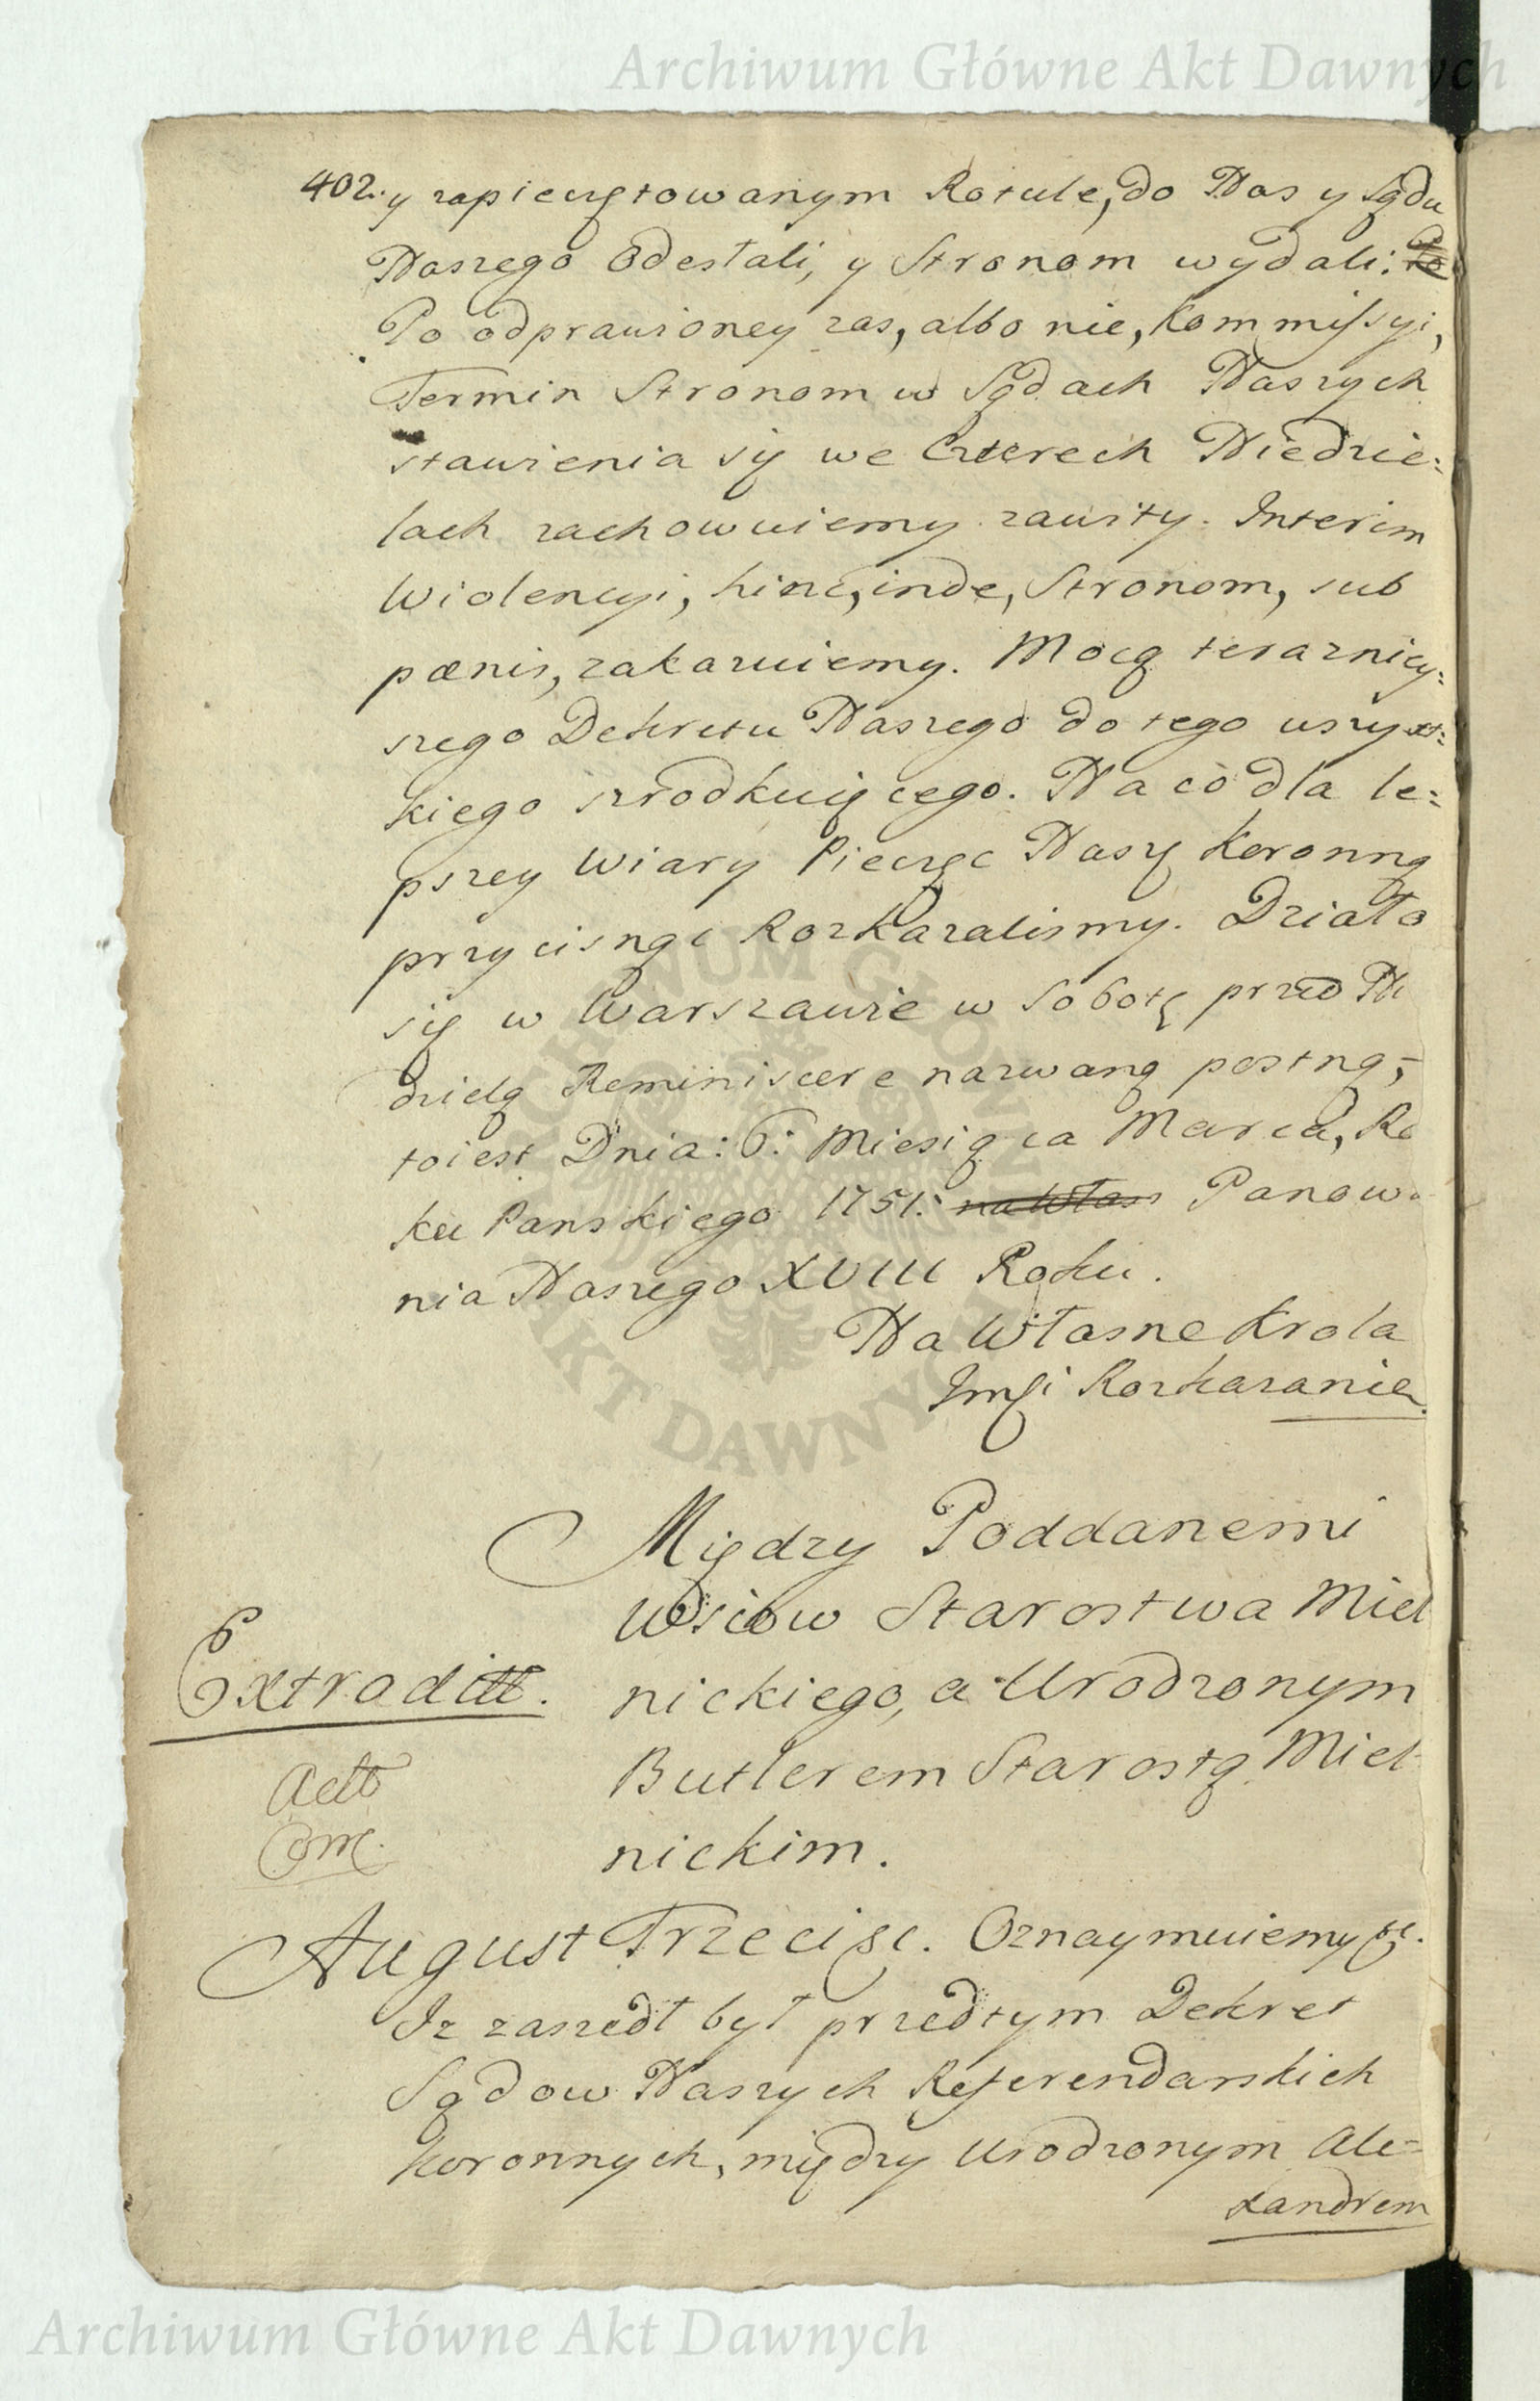 Archiwum Główne Akt Dawnych
402. y zapieczętowanym Rotule, do Nas y Sądu
Naszego Odesłali, y Stronom wydali: to
Po odprawioney zas, albo nie, Kommissyi,
Termin Stronom w Sądach Naszych
stawienia się we Czterech Niedzie:
lach zachowuiemy zawity. Interim
Wiolencyi, hinc, inde, Stronom, sub
pœnis, zakazuiemy. Mocą teraznicy:
szego Dekretu Naszego do tego wszyst:
kiego szrodkuiącego. Na co dla le:
pszey Wiary Pieczęc Naszę Koronną
przycisnąc Rozkazalismy. Działo
się w Warszawie w Sobotę przed Ni
dzielą Reminiscere nazwaną postną,
toiest Dnia: 6: Miesiąca Marca, Ro
ku Panskiego 1751. na Włas Panowa
nia Naszego XVIII Roku.
Na Własne Krola
Jmści Rozkazanie.
Między Poddanemi
Wsiow Starostwa Miel
nickiego, a Urodzonym
Butlerem Starostą Miel
nickim.
Extraditt.
August Trzeci &c. Oznaymuiemy &c.
Iz zaszedł był przedtym Dekret
Sądow Naszych Referendarskich
Koronnych, między Urodzonym Ale=
xandrem
ARCHIWUM GŁÓWNE AKT DAWNYCH
Archiwum Główne Akt Dawnych